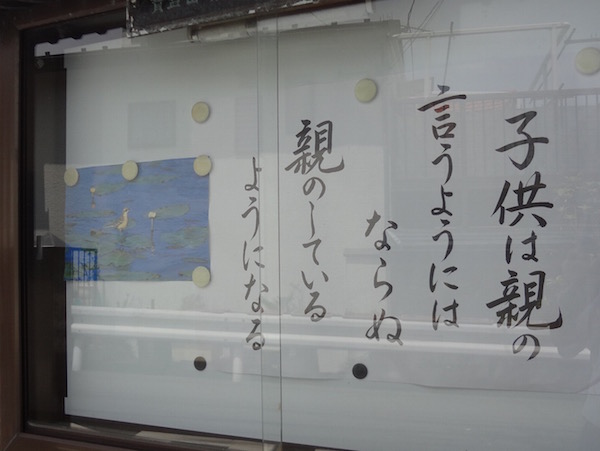 子供は親の
言うようには
ならぬ
親のしている
ようになる